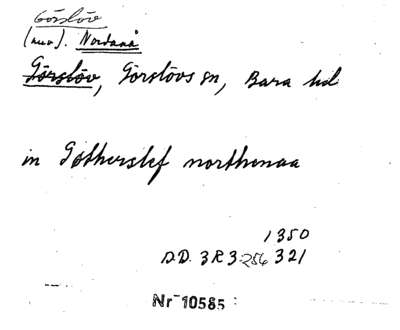 Görslöv
(nuv). Nordanå
Görslöv, Görslövs sn, Bara hd
in Gøtherslef northenaa
1350
D.D. 3R3 256 321
Nr 10585